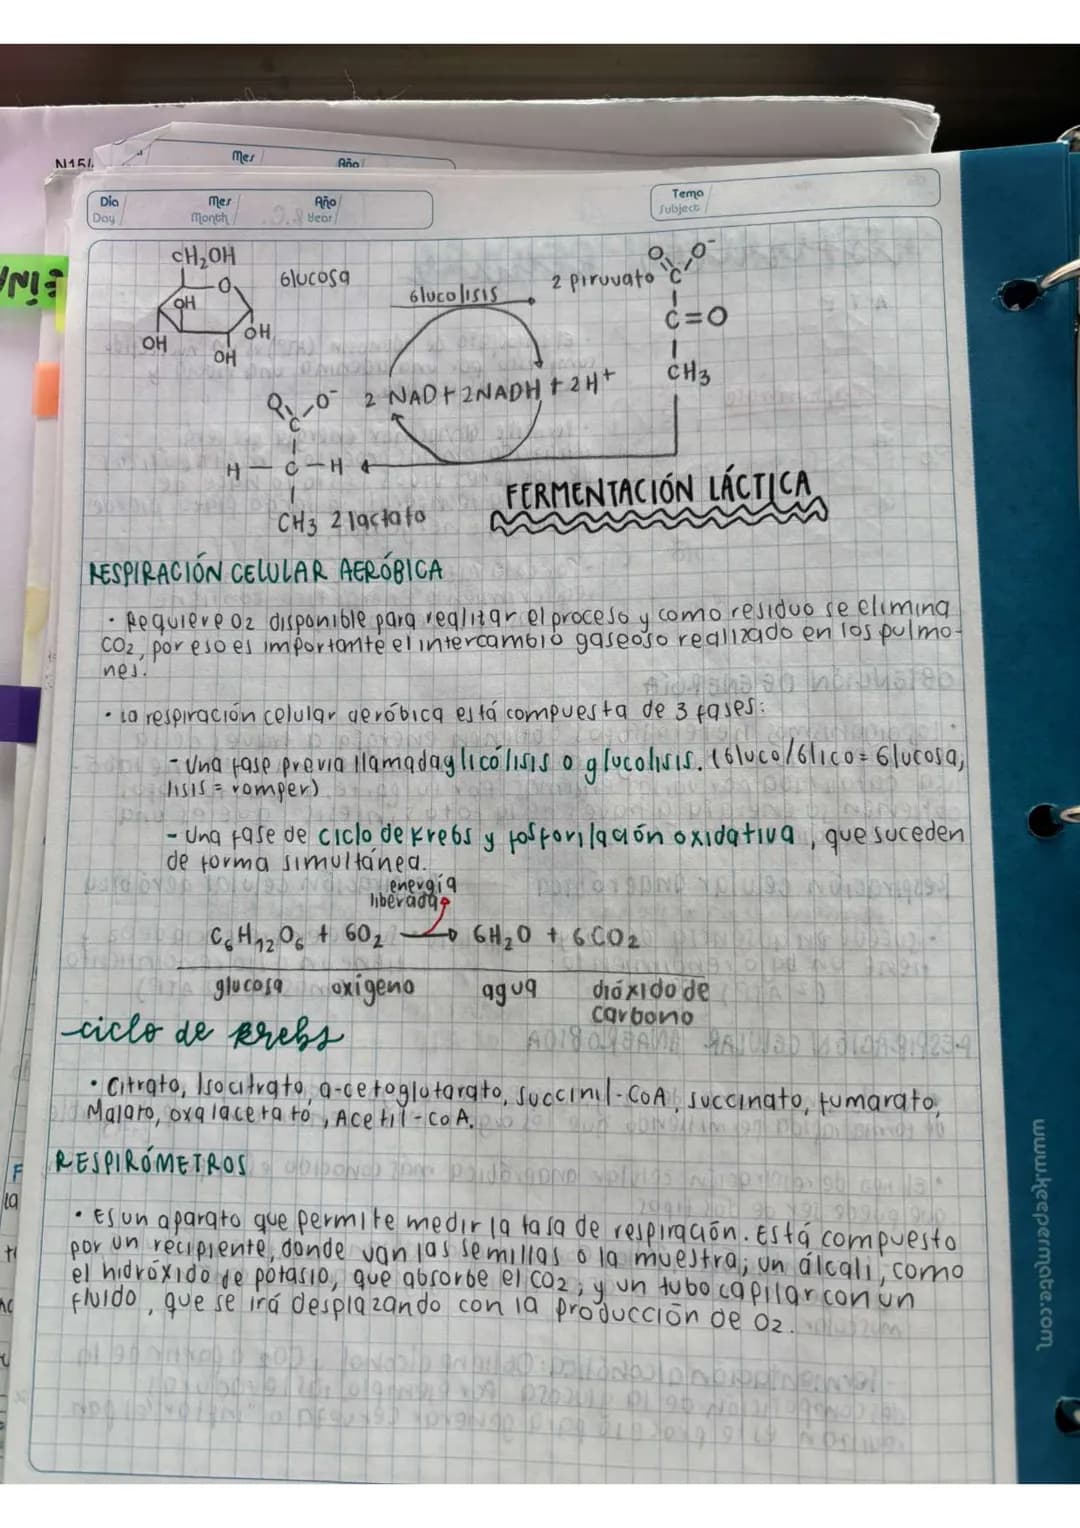 N15/
Mes
Año
Día
Day
Mes
Month
Año
Year
Tema
Subject
CH₂OH
O
OH
OH
OH
OH
Glucosa
glucolisis
2 piruvato
O O⁻
C
C=O
CH3
2 NAD+ 2NADH + 2H+
O O⁻
C
H - C - H
CH3 2 lactato
FERMENTACIÓN LÁCTICA
RESPIRACIÓN CELULAR AERÓBICA
• Requiere O2 disponible para realizar el proceso y como residuo se elimina
CO2, por eso es importante el intercambio gaseoso realizado en los pulmo-
nes.
• La respiración celular aeróbica está compuesta de 3 fases:
- Una fase previa llamada glicólisis o glucolisis. (Gluco/Glico = Glucosa,
lisis = romper)
- Una fase de ciclo de Krebs y fosforilación oxidativa, que suceden
de forma simultánea.
energía
liberada
C₆H₁₂O₆ + 6O₂ → 6H₂O + 6CO₂
glucosa oxigeno agua dióxido de
carbono
ciclo de Krebs
• Citrato, Isocitrato, a-cetoglutarato, Succinil-CoA, succinato, fumarato,
Malato, oxalacetato, Acetil-CoA.
RESPIRÓMETROS
• Es un aparato que permite medir la tasa de respiración. Está compuesto
por un recipiente, donde van las semillas o la muestra; un álcali, como
el hidróxido de potasio, que absorbe el CO2; y un tubo capilar con un
fluido, que se irá desplazando con la producción de O2.
www.keepermate.com